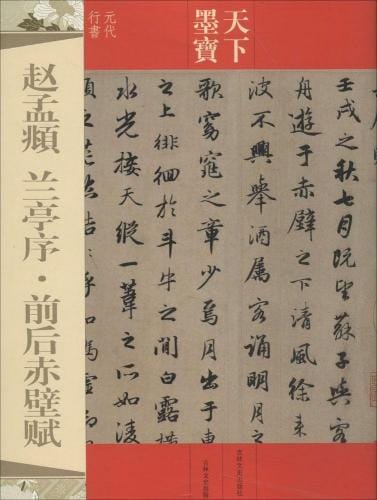 天下
墨寶
元代
行書
赵孟頫 兰亭序·前后赤壁赋
壬戌之秋七月既望蘇子與客
舟遊于赤壁之下清風徐来
波不興舉酒属客誦明月之
歌窈窕之章少焉月出於
之上徘徊於斗牛之間白露横
水光接天縱一葦之所如凌
吉林文史出版社
吉林文史出版